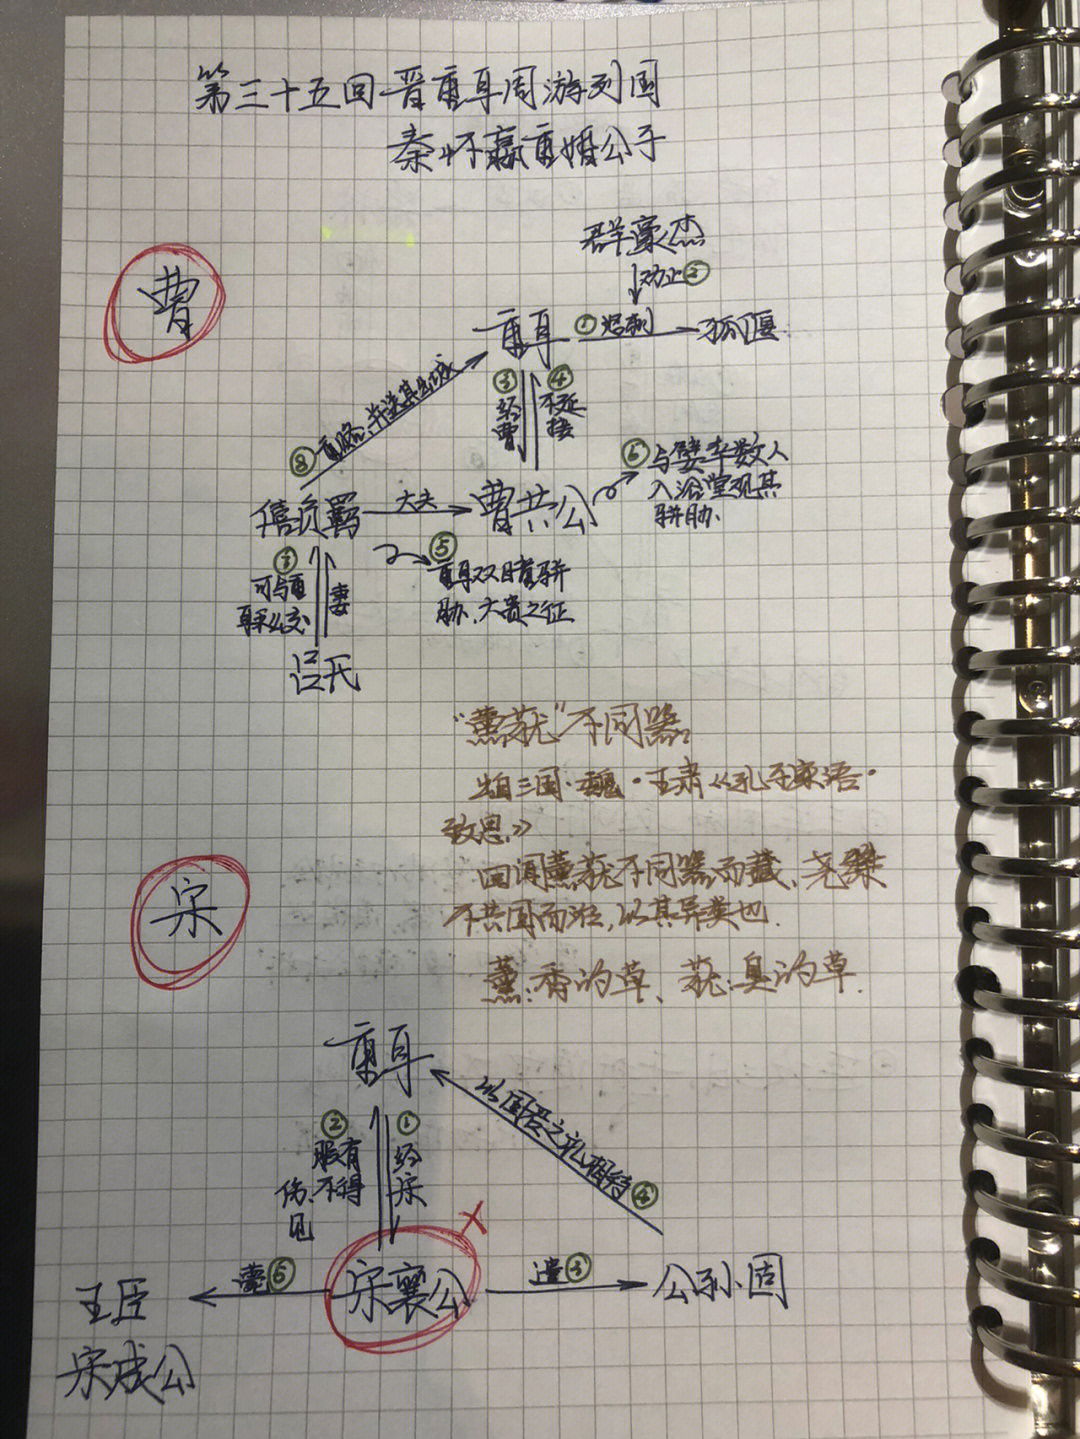 第三十五回 晋重耳周游列国
秦怀嬴重婚公子
曹
群豪杰
劝止②
重耳
①
狐偃
⑧重赂,并送其出城
③经曹
④不延接
僖负羁
大夫
曹共公
⑥与嬖幸数人
入浴堂观其
骈胁.
⑦可与重
耳私交
妻
⑤重耳双瞳骈
胁,大贵之征
吕氏
“薰莸”不同器.
出自三国·魏·王肃《孔子家语·
致思》
回闻薰莸不同器而藏、尧桀
不共国而治,以其异类也.
薰:香的草、莸:臭的草.
宋
重耳
②股有
伤,不得
见
①经宋
以国君之礼相待④
王臣
宋成公
薨⑤
宋襄公
遣③
公孙固